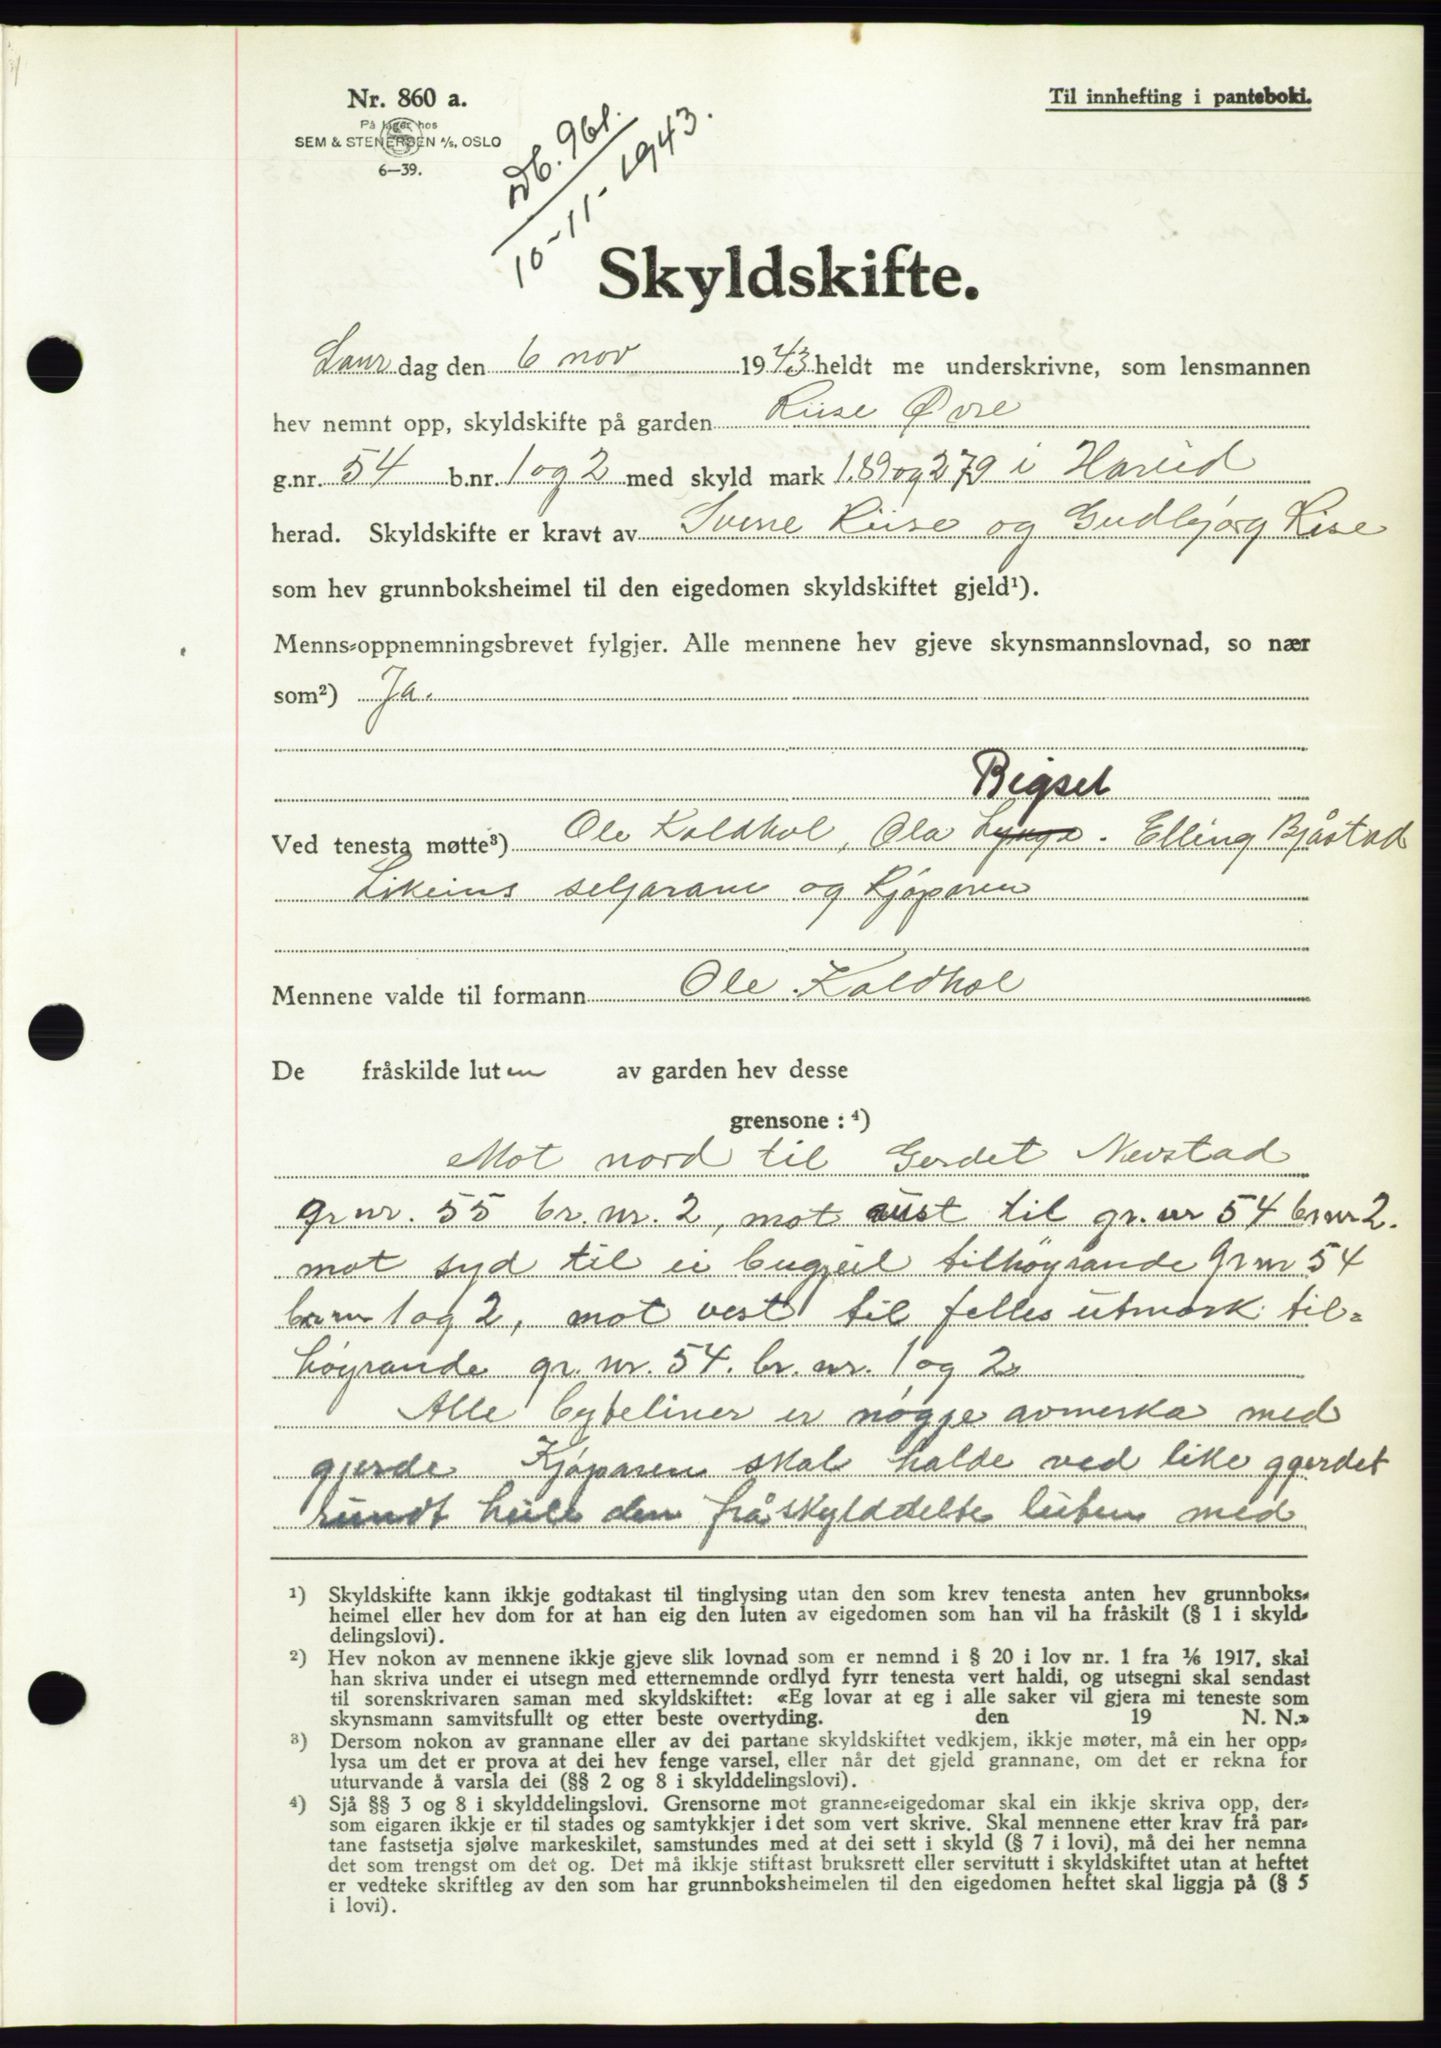 Nr. 860 a.
På lager hos
SEM & STENERSEN A/S, OSLO
6—39.
Til innhefting i panteboki.
Db. 961.
10-11-1943.
Skyldskifte.
Laur dag den 6 nov 1943 heldt me underskrivne, som lensmannen
hev nemnt opp, skyldskifte på garden Riise Øvre
g.nr. 54 b.nr. 1 og 2 med skyld mark 1.89 og 2 79 i Hareid
herad. Skyldskifte er kravt av Sverre Riise og Gudbjørg Rise
som hev grunnboksheimel til den eigedomen skyldskiftet gjeld¹).
Menns-oppnemningsbrevet fylgjer. Alle mennene hev gjeve skynsmannslovnad, so nær
som²) Ja.
Bigset
Ved tenesta møtte³) Ole Kaldhol, Ola Lynge. Elling Bjåstad
Likeins seljarane og Kjøparen
Mennene valde til formann Ole Kaldhol
De fråskilde luten av garden hev desse
grensone : ⁴)
Mot nord til Gerdet Nevstad
gr nr. 55 br. nr. 2, mot aust til gr. nr 54 br nr 2.
mot syd til ei bugjeil tilhøyrande gr nr 54
br nr 1 og 2, mot vest til felles utmark til-
høyrande gr. nr. 54. br. nr. 1 og 2
Alle byteliner er nøgje avmerka med
gjerde Kjøparen skal halde ved like gjerdet
rundt heile den fråskylddelte luten med
¹) Skyldskifte kann ikkje godtakast til tinglysing utan den som krev tenesta anten hev grunnboks-
heimel eller hev dom for at han eig den luten av eigedomen som han vil ha fråskilt (§ 1 i skyld-
delingslovi).
²) Hev nokon av mennene ikkje gjeve slik lovnad som er nemnd i § 20 i lov nr. 1 fra 1/6 1917, skal
han skriva under ei utsegn med etternemnde ordlyd fyrr tenesta vert haldi, og utsegni skal sendast
til sorenskrivaren saman med skyldskiftet: «Eg lovar at eg i alle saker vil gjera mi teneste som
skynsmann samvitsfullt og etter beste overtyding. den 19 N. N.»
³) Dersom nokon av grannane eller av dei partane skyldskiftet vedkjem, ikkje møter, må ein her opp-
lysa um det er prova at dei hev fenge varsel, eller når det gjeld grannane, om det er rekna for
uturvande å varsla dei (§§ 2 og 8 i skylddelingslovi).
⁴) Sjå §§ 3 og 8 i skylddelingslovi. Grensorne mot granne-eigedomar skal ein ikkje skriva opp, der-
som eigaren ikkje er til stades og samtykkjer i det som vert skrive. Skal mennene etter krav frå par-
tane fastsetja sjølve markeskilet, samstundes med at dei sett i skyld (§ 7 i lovi), må dei her nemna
det som trengst om det og. Det må ikkje stiftast bruksrett eller servitutt i skyldskiftet utan at heftet
er vedteke skriftleg av den som har grunnboksheimelen til den eigedomen heftet skal liggja på (§ 5
i lovi).